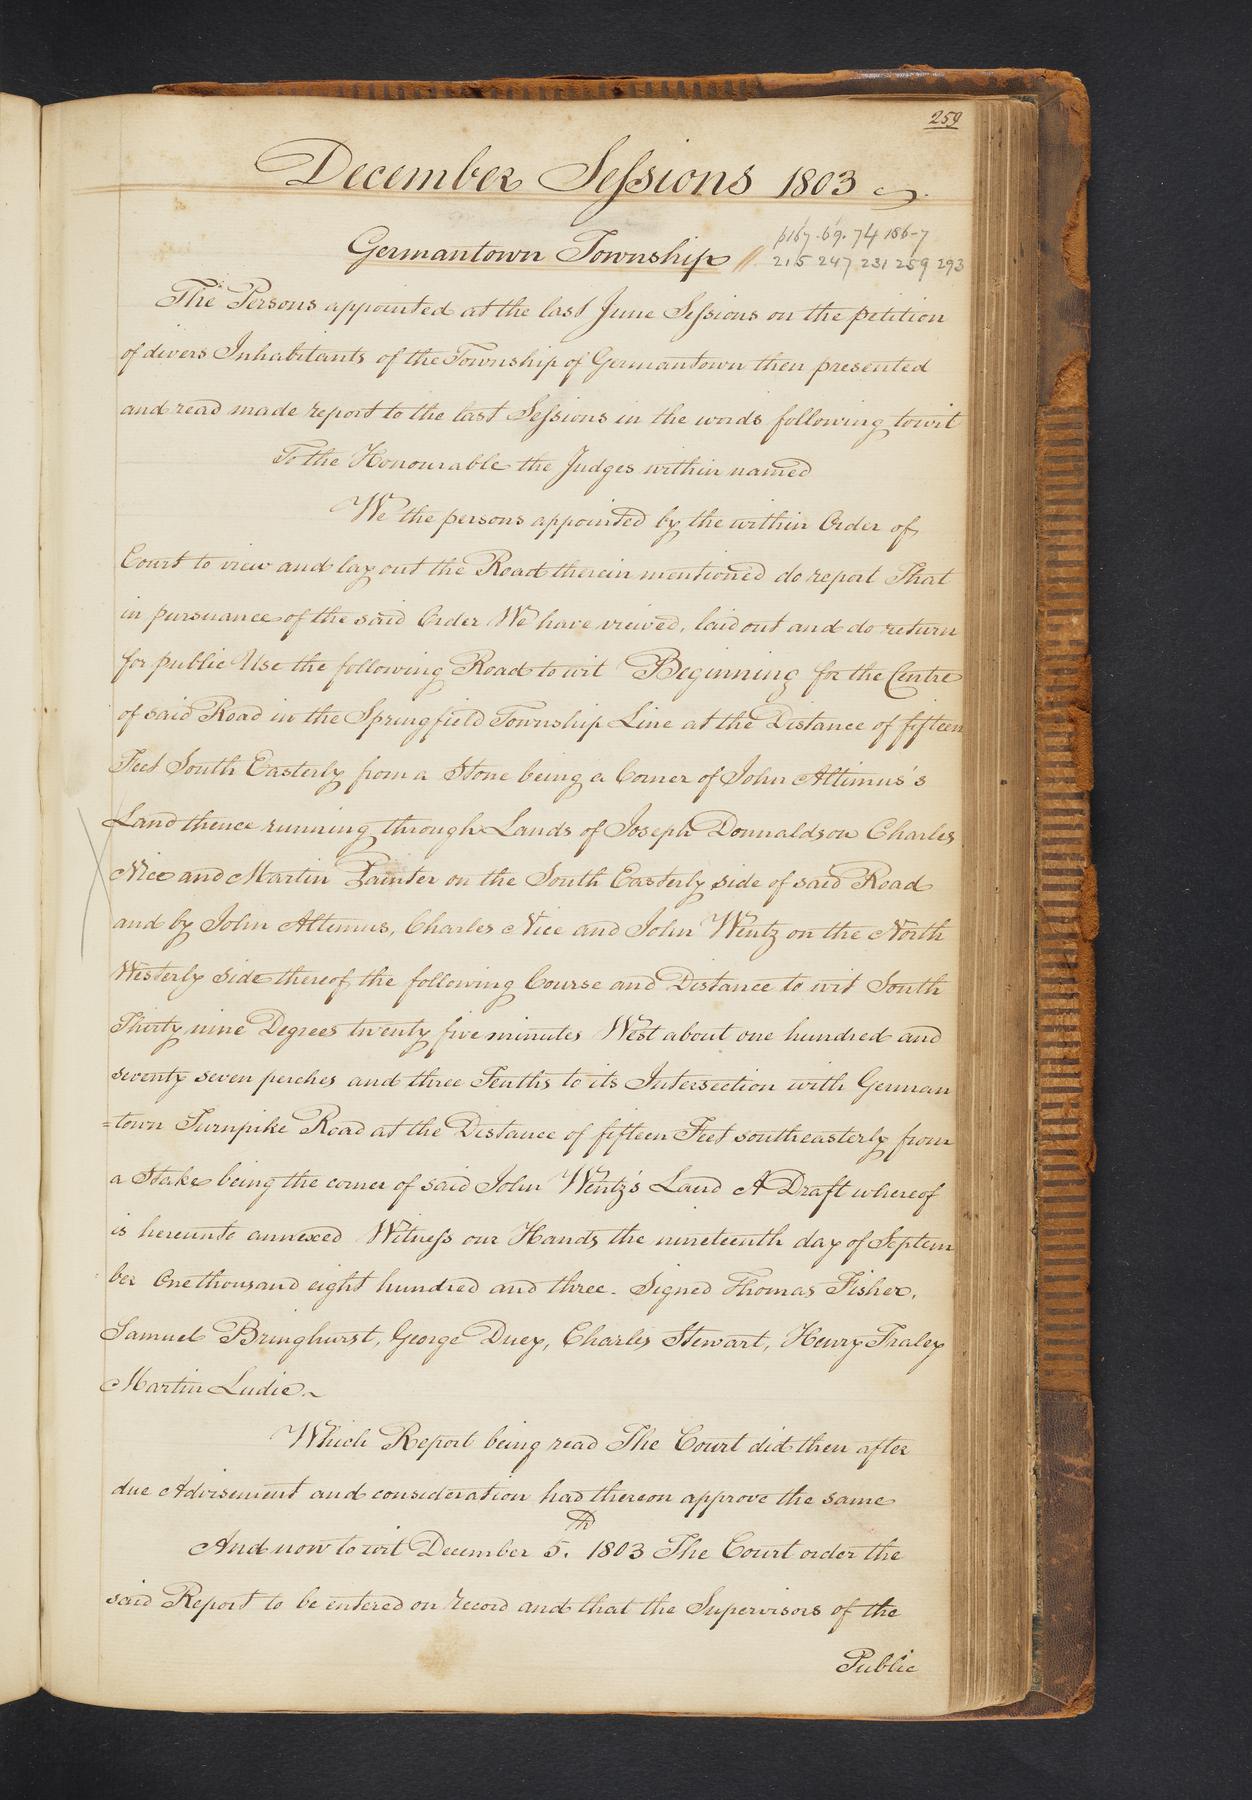 259
December Sessions 1803
Germantown Township //
p167. 69. 74 186-7
215 247 231 259 293
The Persons appointed at the last June Sessions on the petition
of divers Inhabitants of the Township of Germantown then presented
and read made report to the last Sessions in the words following towit
To the Honourable the Judges within named
We the persons appointed by the within Order of
Court to view and lay out the Road therein mentioned do report That
in pursuance of the said Order We have viewed, laid out and do return
for public Use the following Road to wit Beginning for the Centre
of said Road in the Springfield Township Line at the Distance of fifteen
Feet South Easterly from a Stone being a Corner of John Altimus's
Land thence running through Lands of Joseph Donnaldson Charles
Nice and Martin Painter on the South Easterly side of said Road
and by John Altimus, Charles Nice and John Wentz on the North
Westerly Side thereof the following Course and Distance to wit South
Thirty nine Degrees twenty five minutes West about one hundred and
seventy seven perches and three Tenths to its Intersection with German
=town Turnpike Road at the Distance of fifteen Feet southeasterly from
a Stake being the corner of said John Wentz's Land A Draft whereof
is hereunto annexed Witness our Hands the nineteenth day of Septem
ber One thousand eight hundred and three. Signed Thomas Fisher,
Samuel Bringhurst, George Duey, Charles Stewart, Henry Fraley
Martin Ludie
Which Report being read The Court did then after
due Advisement and consideration had thereon approve the same
And now to wit December 5th. 1803 The Court order the
said Report to be entered on record and that the Supervisors of the
Public